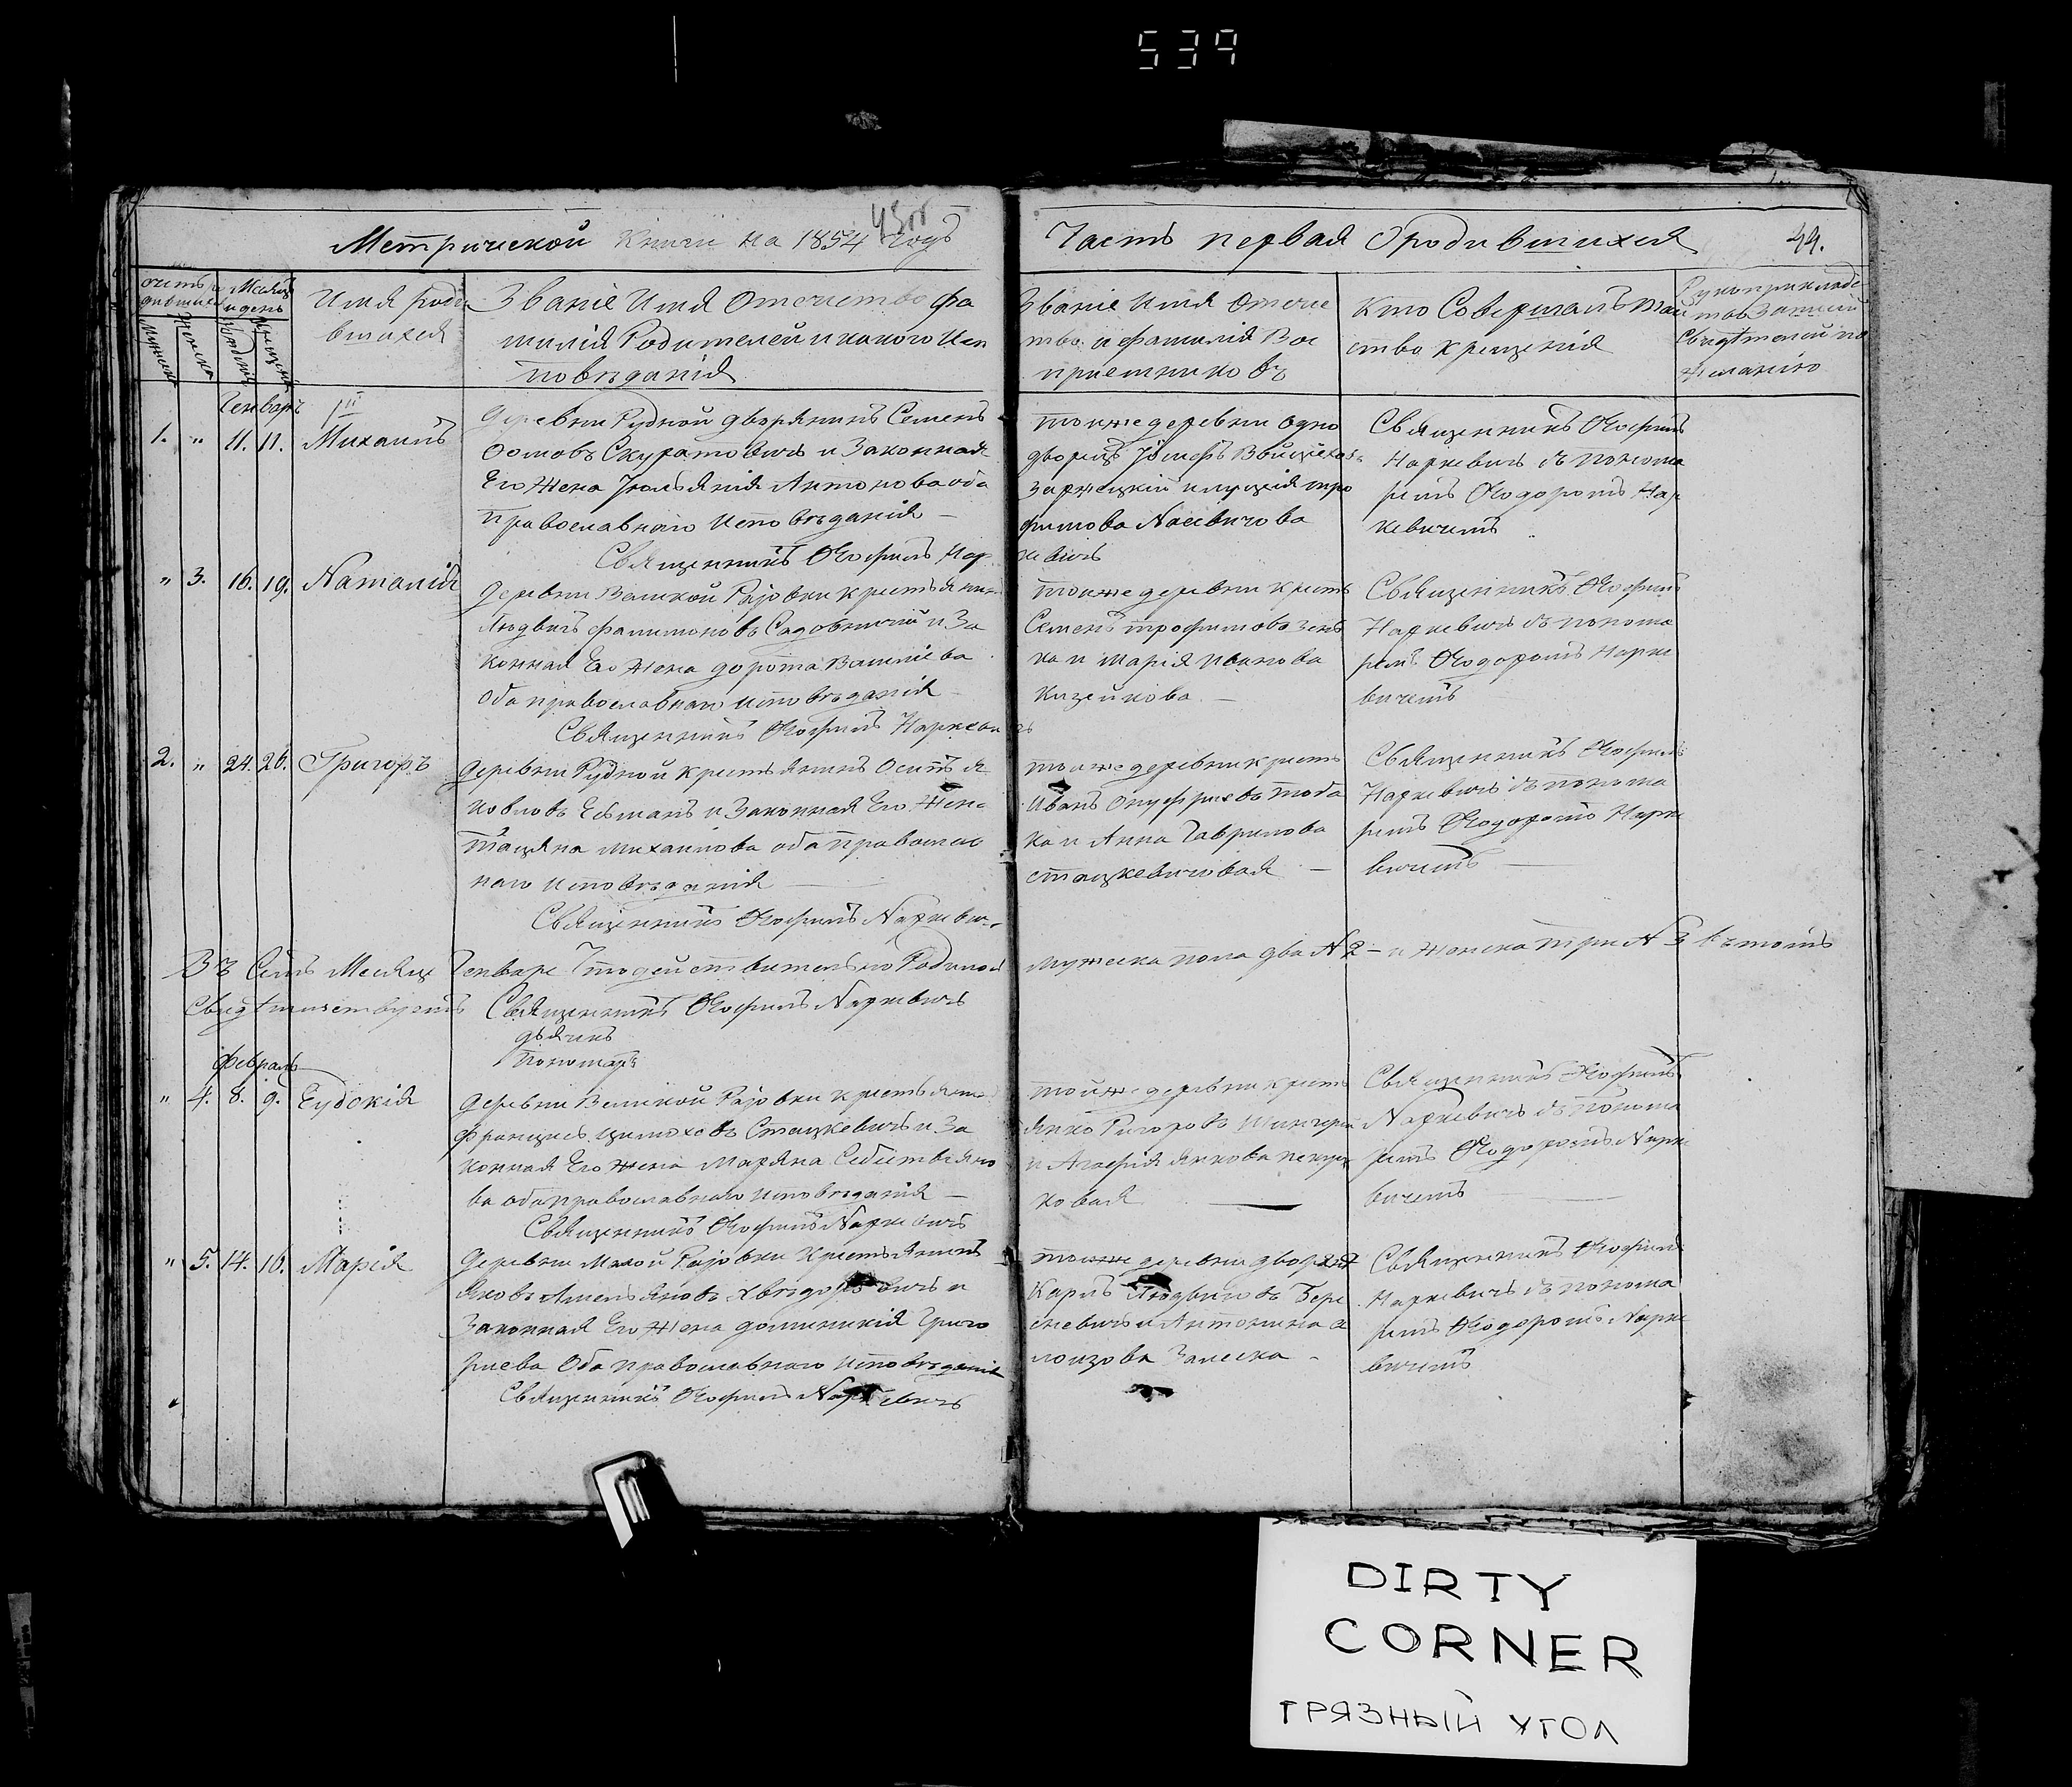 539
43об
Метрической Книги на 1854 годъ
Часть первая О родившихся
44.
Имя роди
вшихся
Званіе Имя Отечество Фа
милія Родителей и какого Исп
повѣданія
Званіе Имя Отече
тво и фамилія Вос
пріемниковъ
Кто Совершалъ Таи
ство крещенія
Рукоприкладс
тво Записи
Свидѣтелей по
желанію
Генварь
1. " 11. 11. Михаилъ
Деревни Рудной дворянинъ Семенъ
Фомовъ Скуратовичъ и Законная
Его Жена Іюльянія Антонова оба
православнаго исповѣданія —
Священникъ Феофилъ Нар
кевичъ
тойже деревни одно
дворецъ Іосифъ
Заржецкій и Луція тро
фимова
Священникъ Феофилъ
Наркевичъ съ понома
ремъ Феодоромъ Нар
кевичемъ
" 3. 16. 19. Наталія
Деревни Великой Раіовки крестьянин
Людвигъ Филимоновъ Садовничій и За
конная Его Жена дорота Василіева
Оба православнаго исповѣданія —
Священникъ Феофилъ Наркеви
чъ
тойже деревни крестъ
Семенъ трофимовъ Зень
ка и Марія Иванова
Кизейкова —
Священникъ Феофилъ
Наркевичъ съ понома
ремъ Феодоромъ Нарке
вичемъ
2. " 24. 26. Григоръ
Деревни Рудной крестьянинъ Осипъ я
ковловъ Есьманъ и Законная Его Жена
тацяна михаилова оба православ
наго исповѣданія —
Священникъ Феофилъ Наркеви
тойже деревни крестъ
Иванъ Онуфріевъ
ка и Анна Гаврилова
стацкевичовая —
Священникъ Феофилъ
Наркевичъ съ понома
ремъ Феодоромъ Нарке
вичемъ —
Въ Семъ Месяце Генваре Что действительно Родилось
мужеска пола два № 2 — и женска три № 3 въ томъ
Свидѣтельствуемъ Священникъ Феофилъ Наркевичъ
дьячикъ
Пономарь
февраль
" 4. 8. 9. Еудокія
Деревни Великой Раіовки крестьянин
Францишъ цимоховъ Стацкевичъ и За
конная Его Жена Маряна Себестьяно
ва оба православнаго исповѣданія —
Священникъ Феофилъ Наркевичъ
тойже деревни крестъ
янко Григоровъ
и Агафія янкова
ковая —
Священникъ Феофилъ
Наркевичъ съ понома
ремъ Феодоромъ Нарке
вичемъ —
" 5. 14. 16. Марія
Деревни Малой Раіовки Крестьянинъ
Яковъ Амельяновъ Хвѣдоровичъ и
Законная Его Жена доминикія Григо
риева Оба православнаго исповѣданія
Священникъ Феофилъ Наркевичъ
тойже деревни дворян
Карлъ Людвиговъ Бере
сневичъ и Антонина а
лоизова Залеска —
Священникъ Феофилъ
Наркевичъ съ понома
ремъ Феодоромъ Нарке
вичемъ
DIRTY
CORNER
ГРЯЗНЫЙ УГОЛ